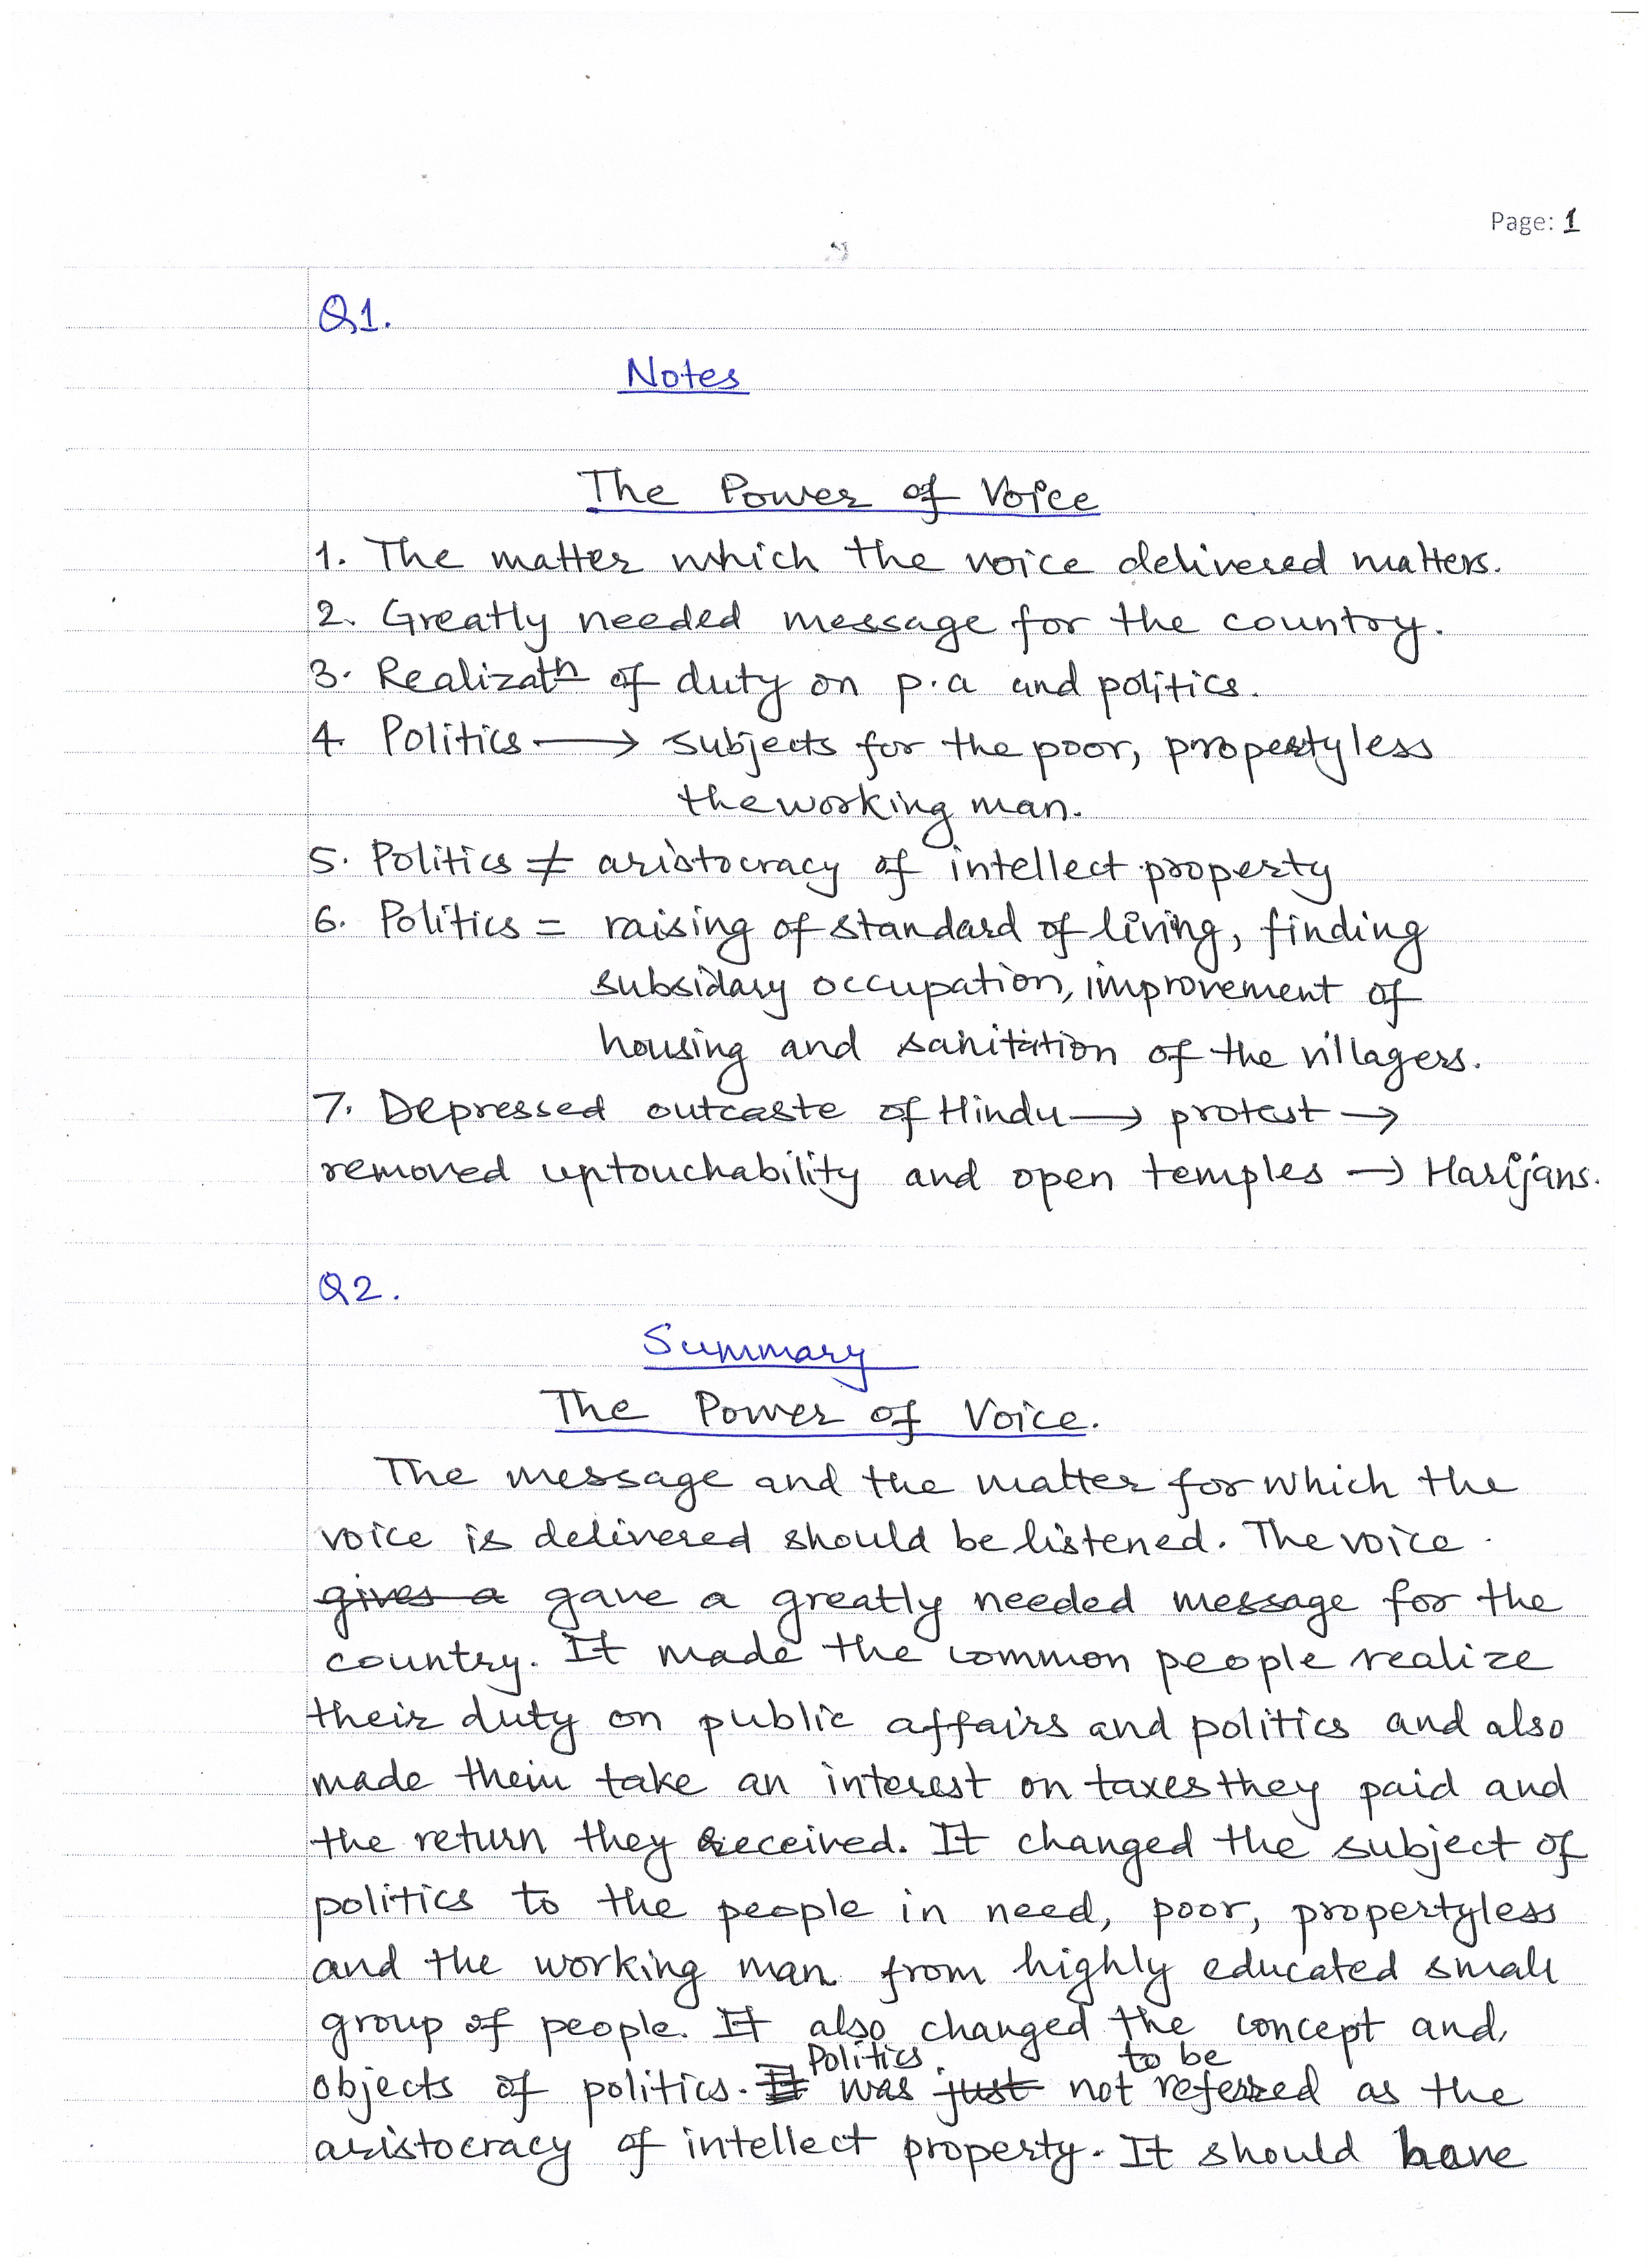 Page: 1
Q1.
Notes
The Power of Voice
1. The matter which the voice delivered matters.
2. Greatly needed message for the country.
3. Realizatn of duty on p.a and politics.
4. Politics → subjects for the poor, propertyless
the working man.
5. Politics ≠ aristocracy of intellect property
6. Politics = raising of standard of living, finding
subsidary occupation, improvement of
housing and sanitation of the villagers.
7. Depressed outcaste of Hindu → protest →
removed uptouchability and open temples → Harijans.
Q2.
Summary
The Power of Voice.
The message and the matter for which the
voice is delivered should be listened. The voice
gives a gave a greatly needed message for the
country. It made the common people realize
their duty on public affairs and politics and also
made them take an interest on taxes they paid and
the return they received. It changed the subject of
politics to the people in need, poor, propertyless
and the working man from highly educated small
group of people. It also changed the concept and
objects of politics. It Politics was just not to be referred as the
aristocracy of intellect property. It should have